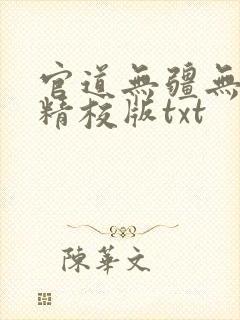 官道無疆無
精校版txt
陳華文